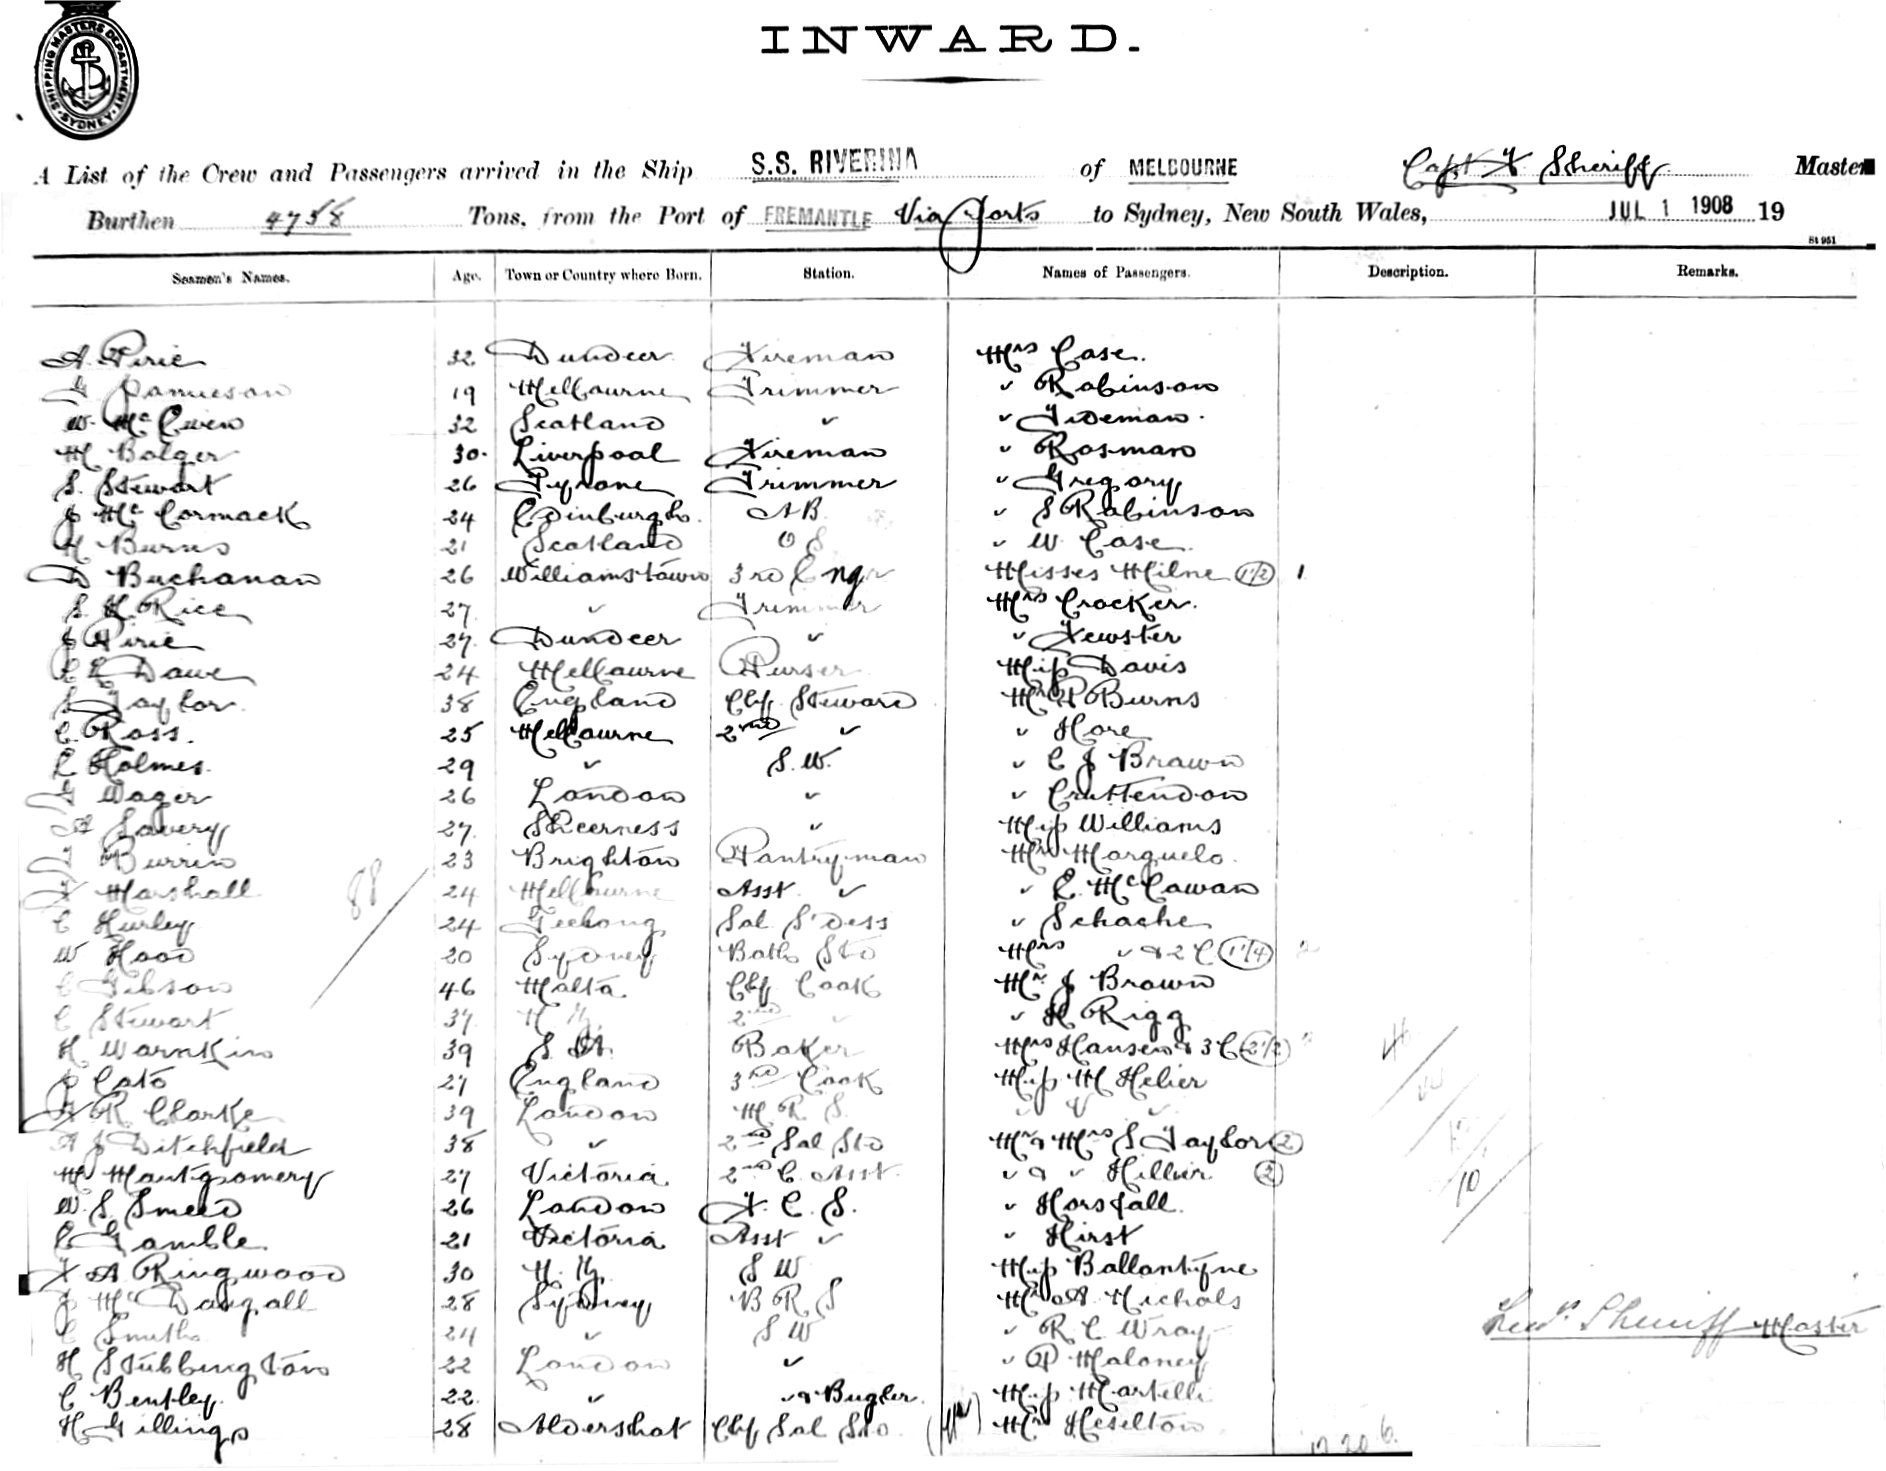 SHIPPING MASTERS DEPARTMENT
SYDNEY
INWARD.
A List of the Crew and Passengers arrived in the Ship S.S. RIVERINA of MELBOURNE Capt F Sheriff Master
Burthen 4758 Tons, from the Port of FREMANTLE Via Ports to Sydney, New South Wales, JUL 1 1908 19
St 951
Seamen's Names. Age. Town or Country where Born. Station. Names of Passengers. Description. Remarks.
A. Pirie 32 Dundee Fireman Mrs Case.
G Jamieson 19 Melbourne Trimmer " Robinson
W. McEwen 32 Scotland " " Tideman.
M Bolger 30. Liverpool Fireman " Rosman
S. Stewart 26 Tyrone Trimmer " Gregory
J McCormack 24 Edinburgh. AB. " S Robinson
H Burns 21 Scotland O S " W Case.
D Buchanan 26 Williamstown 3rd Engr Misses Milne (1/2) 1
S H Rice 27 " Trimmer Mrs Crocker.
J Pirie 27. Dundee " " Fewster
C E Dawe 24 Melbourne Purser Miss Davis
S Taylor. 38 England Chf Steward Mr P Burns
C. Ross. 25 Melbourne 2nd " " Hore
L Holmes. 29 " S.W. " C J Brown
G Wager 26 London " " Cruttendon
A Savery 27. Sheerness " Miss Williams
Burrin 23 Brighton Pantryman Mr Marguelo.
F Marshall 24 Melbourne Asst " " E. McCowan
88
C Hurley 24 Geelong Sal S'dess " Schache
W Hood 20 Sydney Bath Std Mrs " & 2 C (1 1/4)
C Gibson 46 Malta Chf Cook Mr J Brown
C Stewart 37 N Z. 2nd " " H Rigg
H Warnkin 39 S. A. Baker Mrs Hansen & 3 C (2 1/2)
J Cato 27 England 3rd Cook Miss M Helier
F R. Clarke 39 London M R S. " V "
A J Ditchfield 38 " 2nd Sal Std Mr & Mrs S Taylor (2)
Montgomery 27 Victoria 2nd C. Asst. " & " Hillier (2)
10
W. S. Smeed 26 London F. C. S. " Horsfall.
C Gamble. 21 Victoria Asst " " Hirst
F A Ringwood 30 N. Z. S W Miss Ballantyne
J McDougall 28 Sydney B R S Mr A. Nichols
C Smith 24 " S W " R C Wray
Sheriff Master
H Stubbington 22 London " " P Maloney
C Bentley. 22. " " & Bugler. Miss Martelli
H Gillings 28 Aldershot Chf Sal Std. Mr Heselton